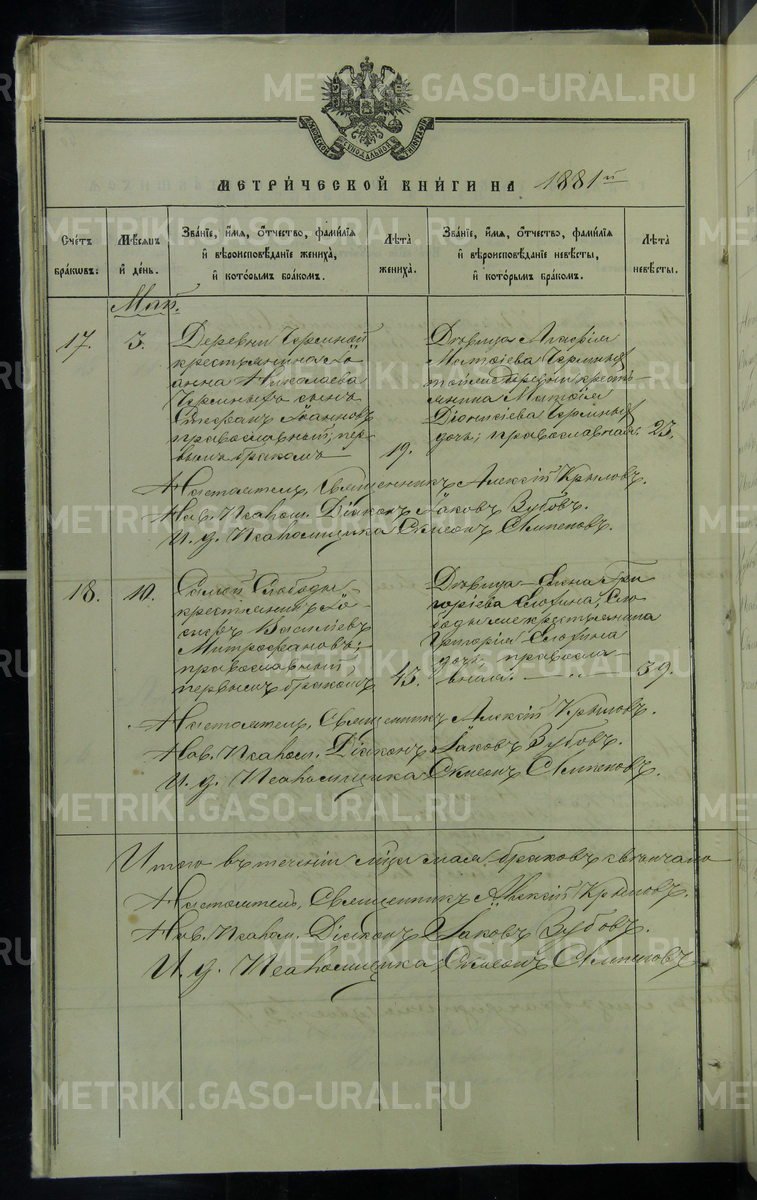 METRIKI.GASO-URAL.RU
МЕТРИ́ЧЕСКОЙ КНИ́ГИ НА 1881й
Сче́тъ бра́кωвъ.
Мѣ́сѧцъ и де́нь.
Зва́нїе, и҆́мѧ, ѻ҆́тчество, фами́лїѧ и҆ вѣроисповѣ́данїе жениха̀, и҆ кото́рымъ бра́комъ.
Лѣ́та жениха̀.
Зва́нїе, и҆́мѧ, ѻ҆́тчество, фами́лїѧ и҆ вѣроисповѣ́данїе невѣ́сты, и҆ кото́рымъ бра́комъ.
Лѣ́та невѣ́сты.
Май.
17.
3.
Деревни Черемной
крестьянина Іо
анна Николаева
Черемныхъ сынъ
Стефанъ Іоанновъ
православный, пер
вымъ бракомъ
19.
Дѣвица
Матѳіева Черемных
тойже деревни кресть
янина Матѳія
Діонисіева Черемных
дочь; православная.
23.
Настоятель, Священникъ Алексій Крыловъ.
Нав. Псалом. Діаконъ Іаковъ Зубовъ.
И. д. Псаломщика Симеонъ
18.
10.
Самой Слободы
крестьянинъ Іо
сифъ Василіевъ
Митрофановъ;
православный;
первымъ бракомъ
43.
Дѣвица Елена Гри
горіева Слобо
ды же крестьянина
Григорія
дочь, правосла
вная.
39.
Настоятель, Священникъ Алексій Крыловъ.
Нав. Псалом. Діаконъ Іаковъ Зубовъ.
И. д. Псаломщика Симеонъ
Итого въ теченіи мая браковъ свѣнчано
Настоятель, Священникъ Алексій Крыловъ.
Нав. Псалом. Діаконъ Іаковъ Зубовъ.
И. д. Псаломщика Симеонъ